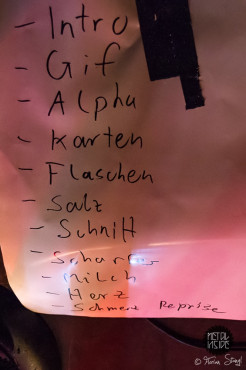 - Intro
- Gif
- Alpha
- Karten
- Flaschen
- Salz
- Schnitt
-
- Milch
- Herz
- Schmerz Reprise
METAL
INSIDE